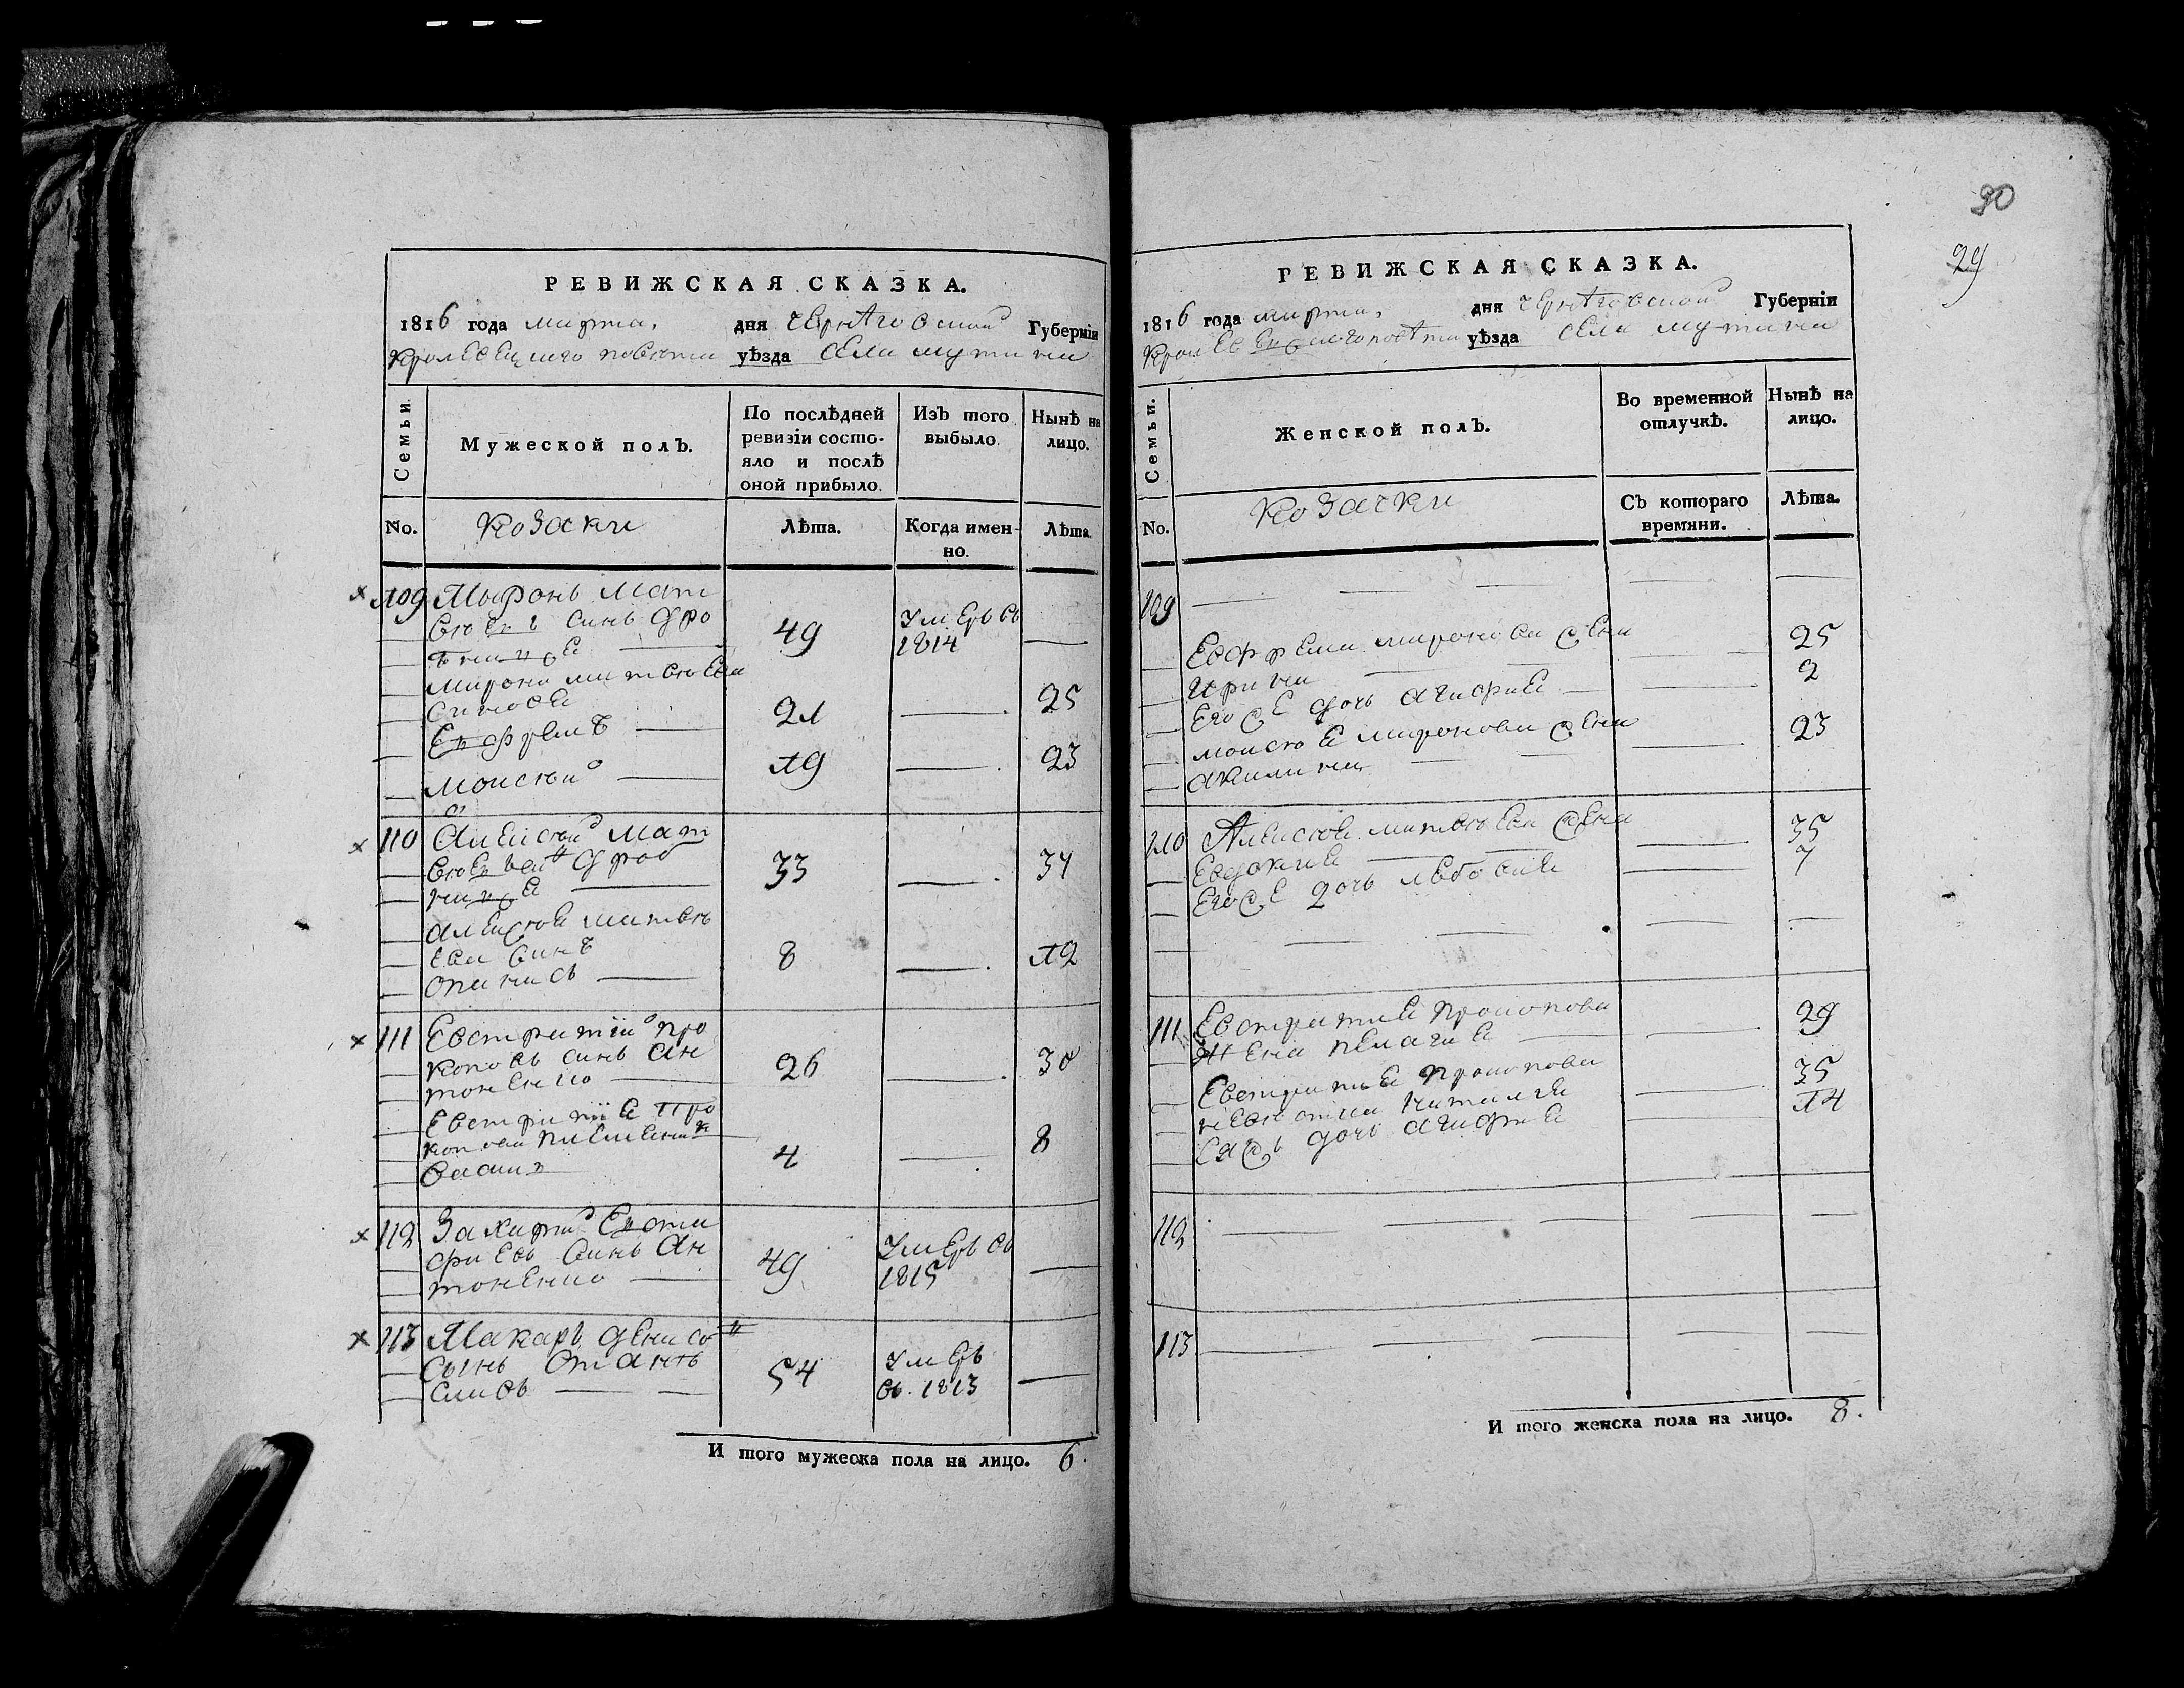 РЕВИЖСКАЯ СКАЗКА.
1816 года марта, дня Черниговской Губерніи
Кролевецкого повета уѣзда села мутина
Семьи. Мужеской полъ. По послѣдней ревизіи состояло и послѣ оной прибыло. Изъ того выбыло. Нынѣ на лицо.
No. Козаки Лѣта. Когда именно. Лѣта.
109 Миронъ Мат
вѣевъ синъ дро
49 Умеръ въ 1814
Мирона матвѣева
синовя
Ефремъ 21 25
Моисей 19 23
110 Алексей Мат
33 37
алексея матвѣ
ева синъ
опанасъ 8 12
111 Евстратий про
коповъ синъ Ан
тоненко 26 30
Евстратия Про
племеник
4 8
112 Захарий Евста
фиевъ синъ Ан
тоненко 49 Умеръ въ 1815
113 Макаръ денисо
сынъ
54 Умеръ въ 1813
И того мужеска пола на лицо. 6.
90
29
РЕВИЖСКАЯ СКАЗКА.
1816 года марта, дня Черниговской Губерніи
уѣзда села мутина
Семьи. Женской полъ. Во временной отлучкѣ. Нынѣ на лицо.
No. Козачки Съ котораго времяни. Лѣта.
109
Ефрема миронова жена
ирина 25
Его же дочь агафия 2
моисея миронова жена
акилина 23
110 Алексея матвѣева жена
Евдокия 35
Его же дочь 7
111 Евстратия прокопова
жена пелагия 29
Евстратия прокопова
невѣстка наталия 35
дочь агафия 14
112
113
И того женска пола на лицо. 8.